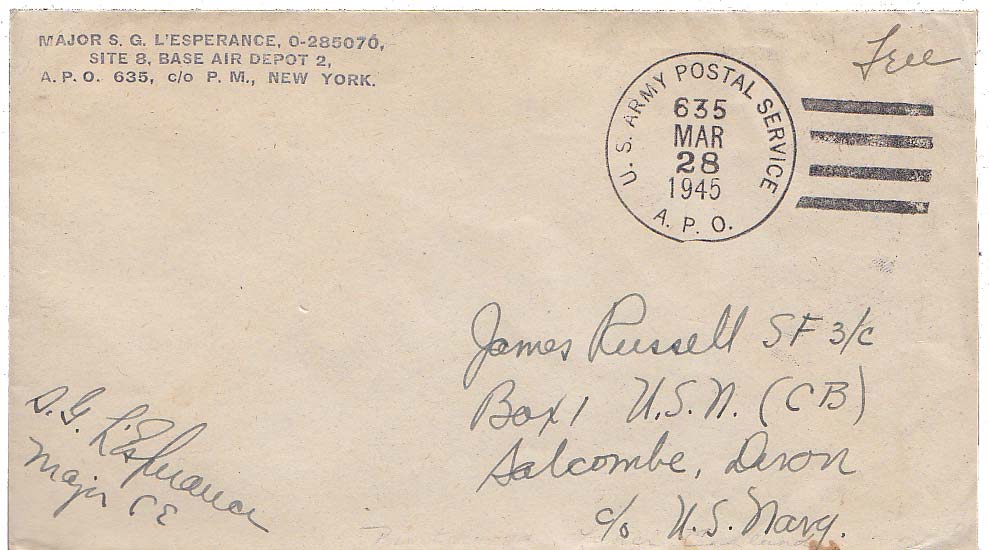 MAJOR S. G. L'ESPERANCE, O-285070,
SITE 8, BASE AIR DEPOT 2,
A. P. O. 635, c/o P. M., NEW YORK.
Free
U. S. ARMY POSTAL SERVICE
635
MAR
28
1945
A. P. O.
James Russell SF 3/c
Box 1 U.S.N. (CB)
Salcombe, Devon
c/o U.S. Navy.
S.G. L'Esperance
Major CE